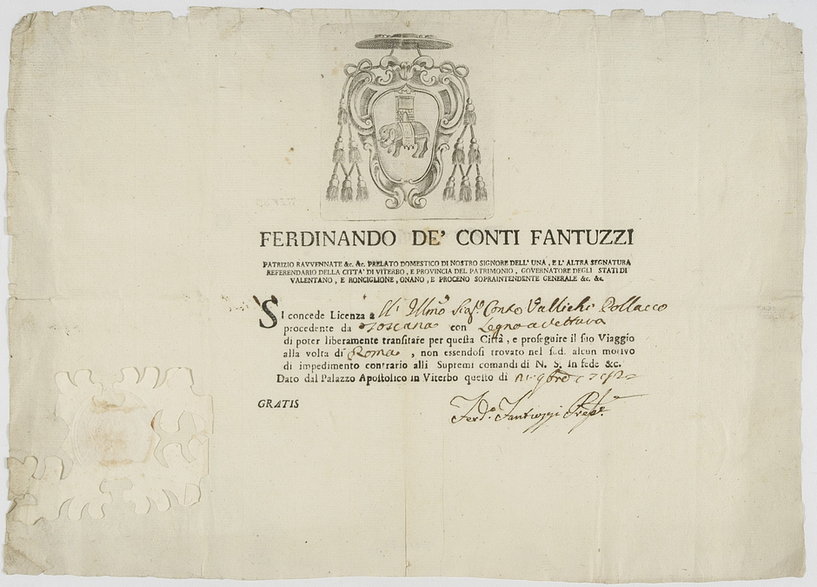 FERDINANDO DE' CONTI FANTUZZI
PATRIZIO RAVVENNATE &c. &c. PRELATO DOMESTICO DI NOSTRO SIGNORE DELL' UNA, E L' ALTRA SEGNATURA
REFERENDARIO DELLA CITTA' DI VITERBO, E PROVINCIA DEL PATRIMONIO, GOVERNATORE DEGLI STATI DI
VALENTANO, E RONCIGLIONE, ONANO, E PROCENO SOPRAINTENDENTE GENERALE &c. &c.
SI concede Licenza a Ill Illmo Sigr. Conte Pollacco
procedente da Toscana con Legno a Vettura
di poter liberamente transitare per questa Città, e proseguire il suo Viaggio
alla volta di Roma, non essendosi trovato nel sud. alcun motivo
di impedimento contrario alli Supremi comandi di N. S. In fede &c.
Dato dal Palazzo Apostolico in Viterbo questo di
GRATIS
Ferdo. Fantuzzi